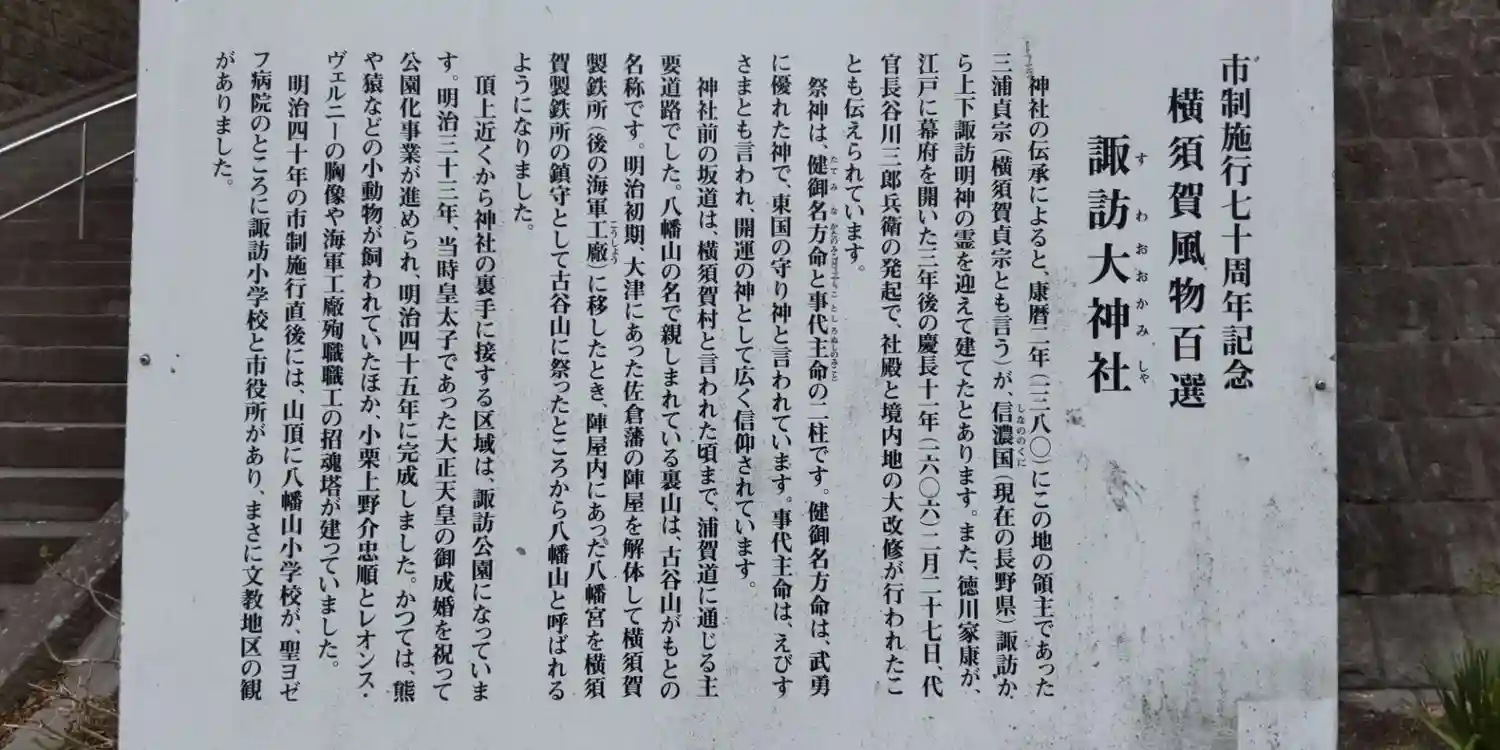 市制施行七十周年記念
横須賀風物百選
諏訪大神社
すわおおかみしゃ
神社の伝承によると、康暦二年(一三八〇)にこの地の領主であった
三浦貞宗(横須賀貞宗とも言う)が、信濃国(現在の長野県)諏訪か
しなののくに
ら上下諏訪明神の霊を迎えて建てたとあります。また、徳川家康が、
江戸に幕府を開いた三年後の慶長十一年(一六〇六)二月二十七日、代
官長谷川三郎兵衛の発起で、社殿と境内地の大改修が行われたこ
とも伝えられています。
祭神は、健御名方命と事代主命の二柱です。健御名方命は、武勇
たてみなかたのみこと ことしろぬしのみこと
に優れた神で、東国の守り神と言われています。事代主命は、えびす
さまとも言われ、開運の神として広く信仰されています。
神社前の坂道は、横須賀村と言われた頃まで、浦賀道に通じる主
要道路でした。八幡山の名で親しまれている裏山は、古谷山がもとの
名称です。明治初期、大津にあった佐倉藩の陣屋を解体して横須賀
製鉄所(後の海軍工廠)に移したとき、陣屋内にあった八幡宮を横須
こうしょう
賀製鉄所の鎮守として古谷山に祭ったところから八幡山と呼ばれる
ようになりました。
頂上近くから神社の裏手に接する区域は、諏訪公園になっていま
す。明治三十三年、当時皇太子であった大正天皇の御成婚を祝って
公園化事業が進められ、明治四十五年に完成しました。かつては、熊
や猿などの小動物が飼われていたほか、小栗上野介忠順とレオンス・
ヴェルニーの胸像や海軍工廠殉職職工の招魂塔が建っていました。
明治四十年の市制施行直後には、山頂に八幡山小学校が、聖ヨゼ
フ病院のところに諏訪小学校と市役所があり、まさに文教地区の観
がありました。